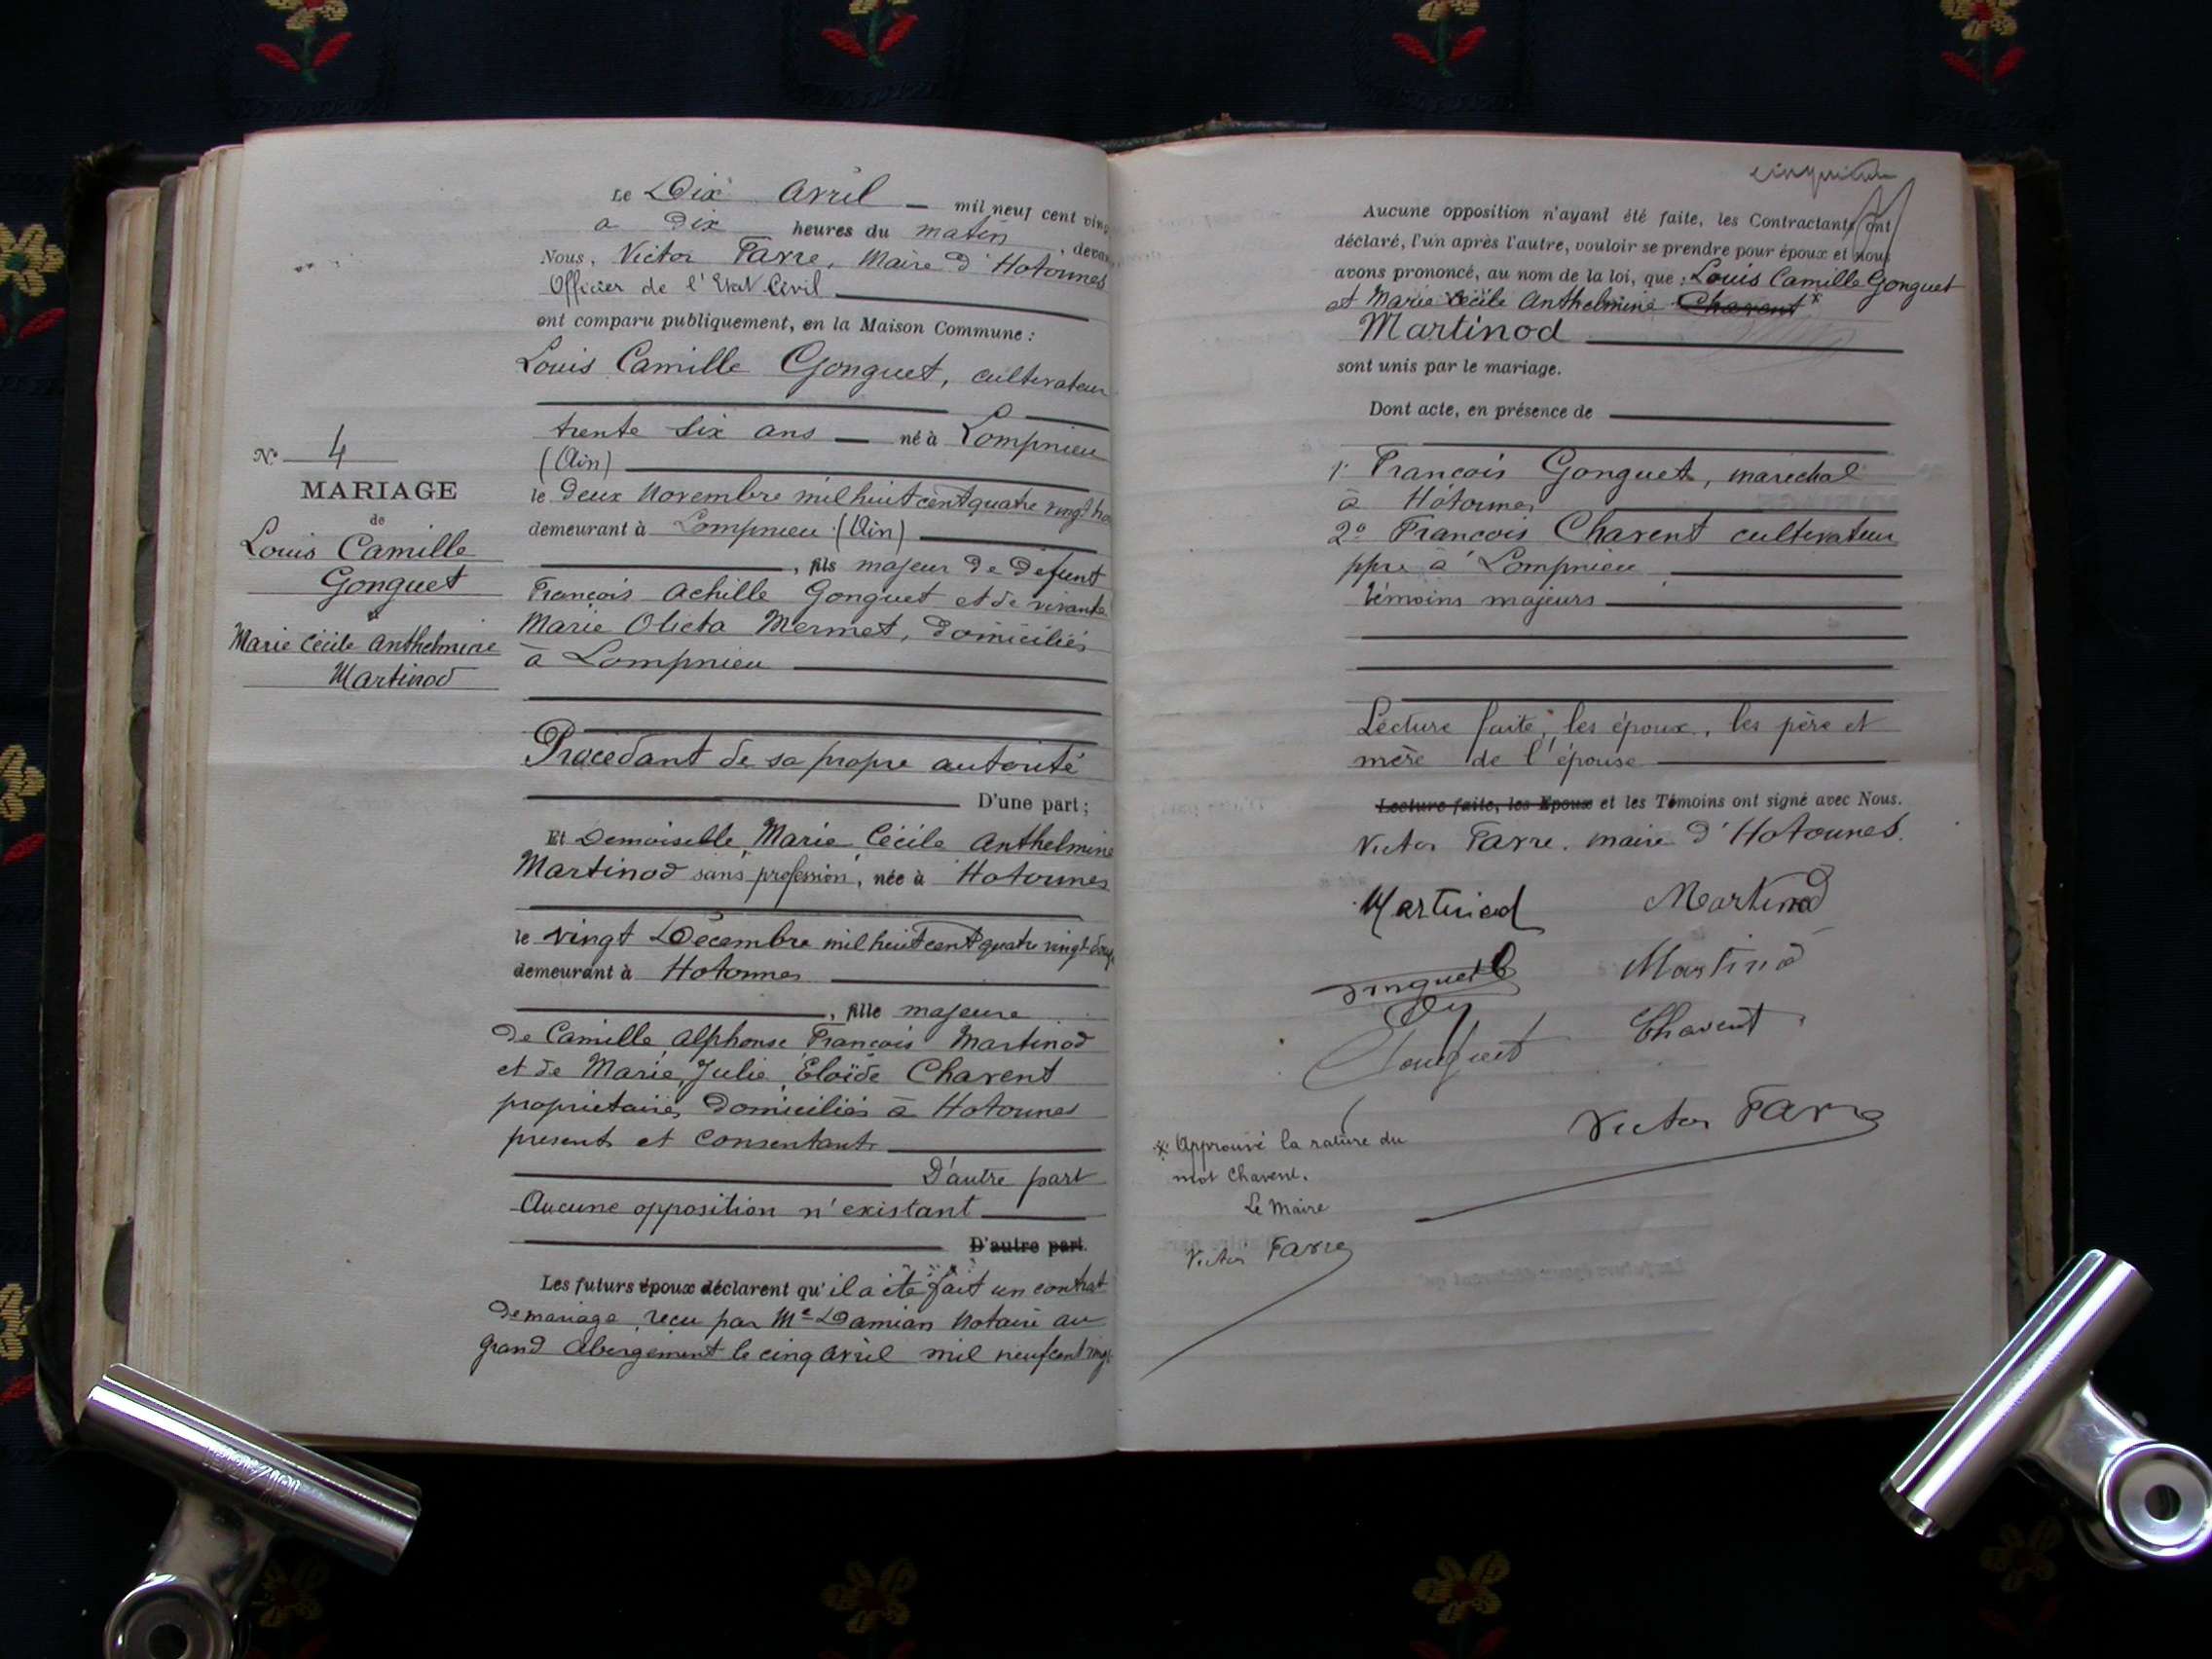 Le Dix Avril — mil neuf cent ving
a Dix heures du matin, devan
Nous, Victor Favre, Maire d'Hotonnes
Officier de l'Etat Civil
ont comparu publiquement, en la Maison Commune :
Louis Camille Gonguet, cultivateur
trente six ans — né à Lompnieu
(Ain)
le deux Novembre mil huit cent quatre vingt
demeurant à Lompnieu (Ain)
, fils majeur de défunt
François Achille Gonguet et de vivante
Marie Mermet, domiciliés
à Lompnieu
Procédant de sa propre autorité
D'une part ;
No 4
MARIAGE
de
Louis Camille
Gonguet
et
Marie Cécile Anthelmine
Martinod
Et Demoiselle, Marie, Cécile Anthelmine
Martinod sans profession, née à Hotonnes
le vingt Décembre mil huit cent quatre vingt
demeurant à Hotonnes
, fille majeure
de Camille, Alphonse François Martinod
et de Marie, Julie, Eloïde Charent
propriétaires domiciliés à Hotonnes
présents et consentants
D'autre part
Aucune opposition n'existant
D'autre part.
Les futurs époux déclarent qu'il a été fait un contrat
de mariage, reçu par Me Damian Notaire au
grand Abergement le cinq Avril mil neuf cent vingt
Aucune opposition n'ayant été faite, les Contractants ont
déclaré, l'un après l'autre, vouloir se prendre pour époux et nous
avons prononcé, au nom de la loi, que : Louis Camille Gonguet
et Marie Cécile Anthelmine Charent x
Martinod
sont unis par le mariage.
Dont acte, en présence de
1. François Gonguet, maréchal
à Hotonnes
2o François Charent cultivateur
ppre à Lompnieu
témoins majeurs
Lecture faite, les époux, les père et
mère de l'épouse
Lecture faite, les Epoux et les Témoins ont signé avec Nous.
Victor Favre. maire d'Hotonnes.
Martinod Martinod
Gonguet Martinod
Gonguet Charent
Victor Favre
x Approuvé la rature du
mot Charent.
Le Maire
Victor Favre